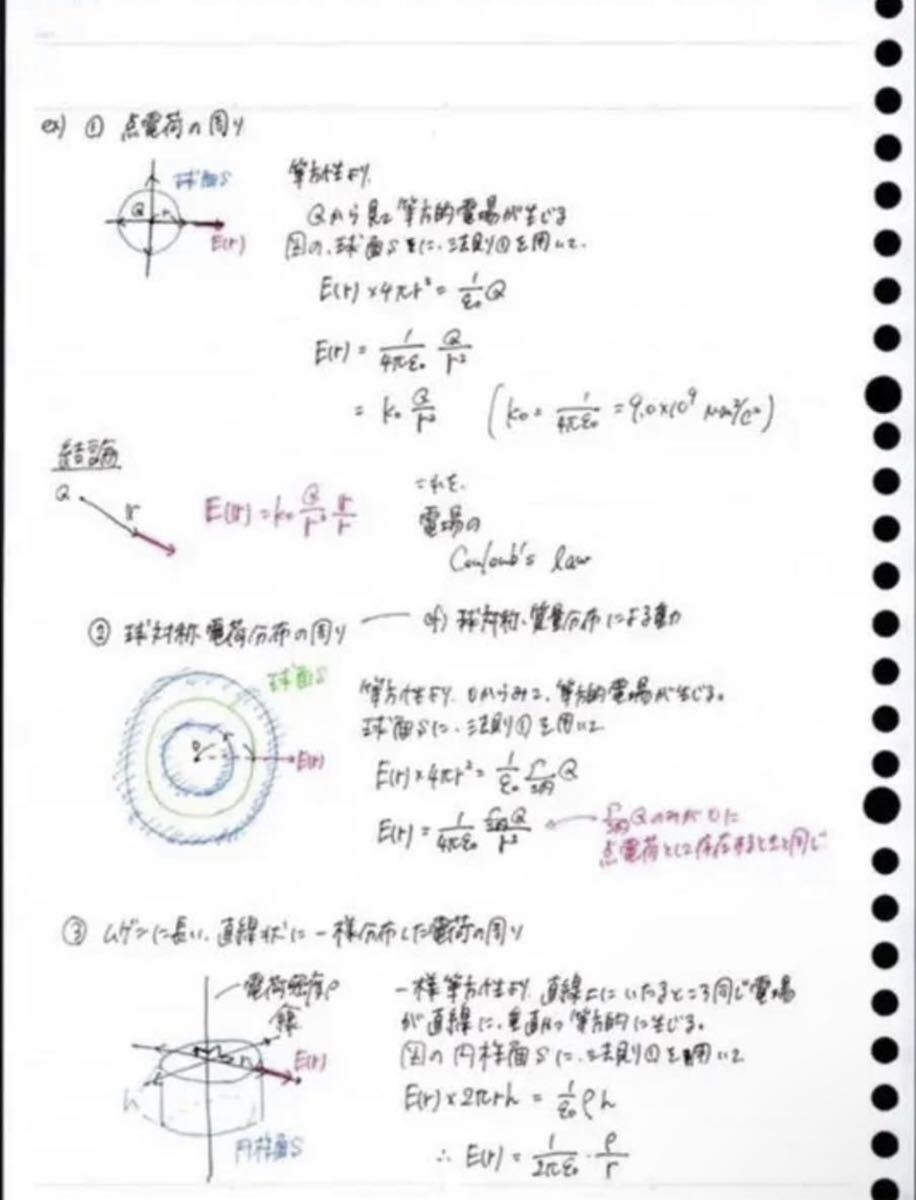 ex) ① 点電荷の周り
球面S
Q
r
E(r)
等方性より、
Qから見て等方的電場が生じる
図の、球面Sをに、法則①を用いて、
E(r) × 4πr² = 1/ε₀ Q
E(r) = 1/4πε₀ Q/r²
= k₀ Q/r² (k₀ = 1/4πε₀ = 9.0×10⁹ Nm²/C²)
結論
Q
r
E(r) = k₀ Q/r² r/r
これを、
電場の
Coulomb's law
② 球対称電荷分布の周り
cf) 球対称、質量分布による重力
球面S
O
r
E(r)
等方性より、Oからみて、等方的電場が生じる。
球面Sに、法則①を用いて
E(r) × 4πr² = 1/ε₀ S内 Q
E(r) = 1/4πε₀ S内Q/r²
S内QのみがOに
点電荷として存在するときと同じ
③ ムゲンに長い、直線状に一様分布した電荷の周り
電荷密度ρ
線
r
E(r)
h
円柱面S
一様等方性より、直線上にいたるところ同じ電場
が直線に、垂直かつ等方的に生じる。
図の円柱面Sに、法則①を用いて
E(r) × 2πrh = 1/ε₀ ρh
∴ E(r) = 1/2πε₀ · ρ/r